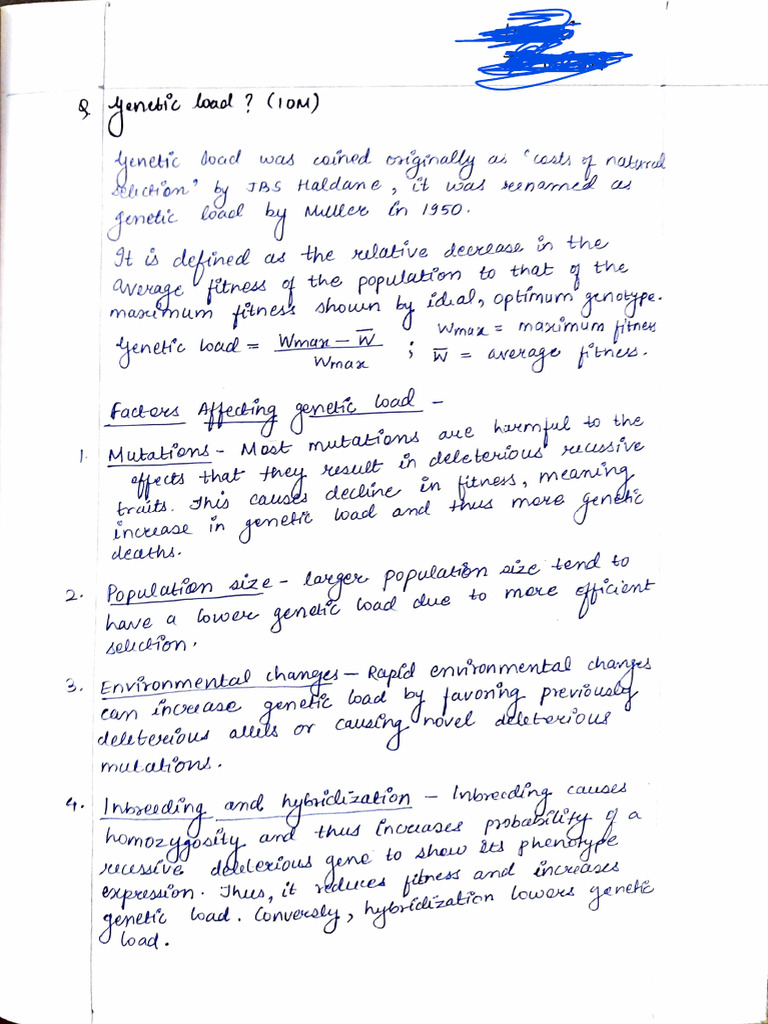 Q. Genetic load? (10M)
Genetic load was coined originally as 'costs of natural
selection' by JBS Haldane, it was renamed as
genetic load by Muller in 1950.
It is defined as the relative decrease in the
average fitness of the population to that of the
maximum fitness shown by ideal, optimum genotype.
Genetic load = (Wmax - W̅) / Wmax ; Wmax = maximum fitness
W̅ = average fitness.
Factors Affecting genetic load -
1. Mutations - Most mutations are harmful to the
effects that they result in deleterious recessive
traits. This causes decline in fitness, meaning
increase in genetic load and thus more genetic
deaths.
2. Population size - larger population size tend to
have a lower genetic load due to more efficient
selection.
3. Environmental changes - Rapid environmental changes
can increase genetic load by favoring previously
deleterious allels or causing novel deleterious
mutations.
4. Inbreeding and hybridization - Inbreeding causes
homozygosity and thus increases probability of a
recessive deleterious gene to show its phenotype
expression. Thus, it reduces fitness and increases
genetic load. Conversly, hybridization lowers genetic
load.